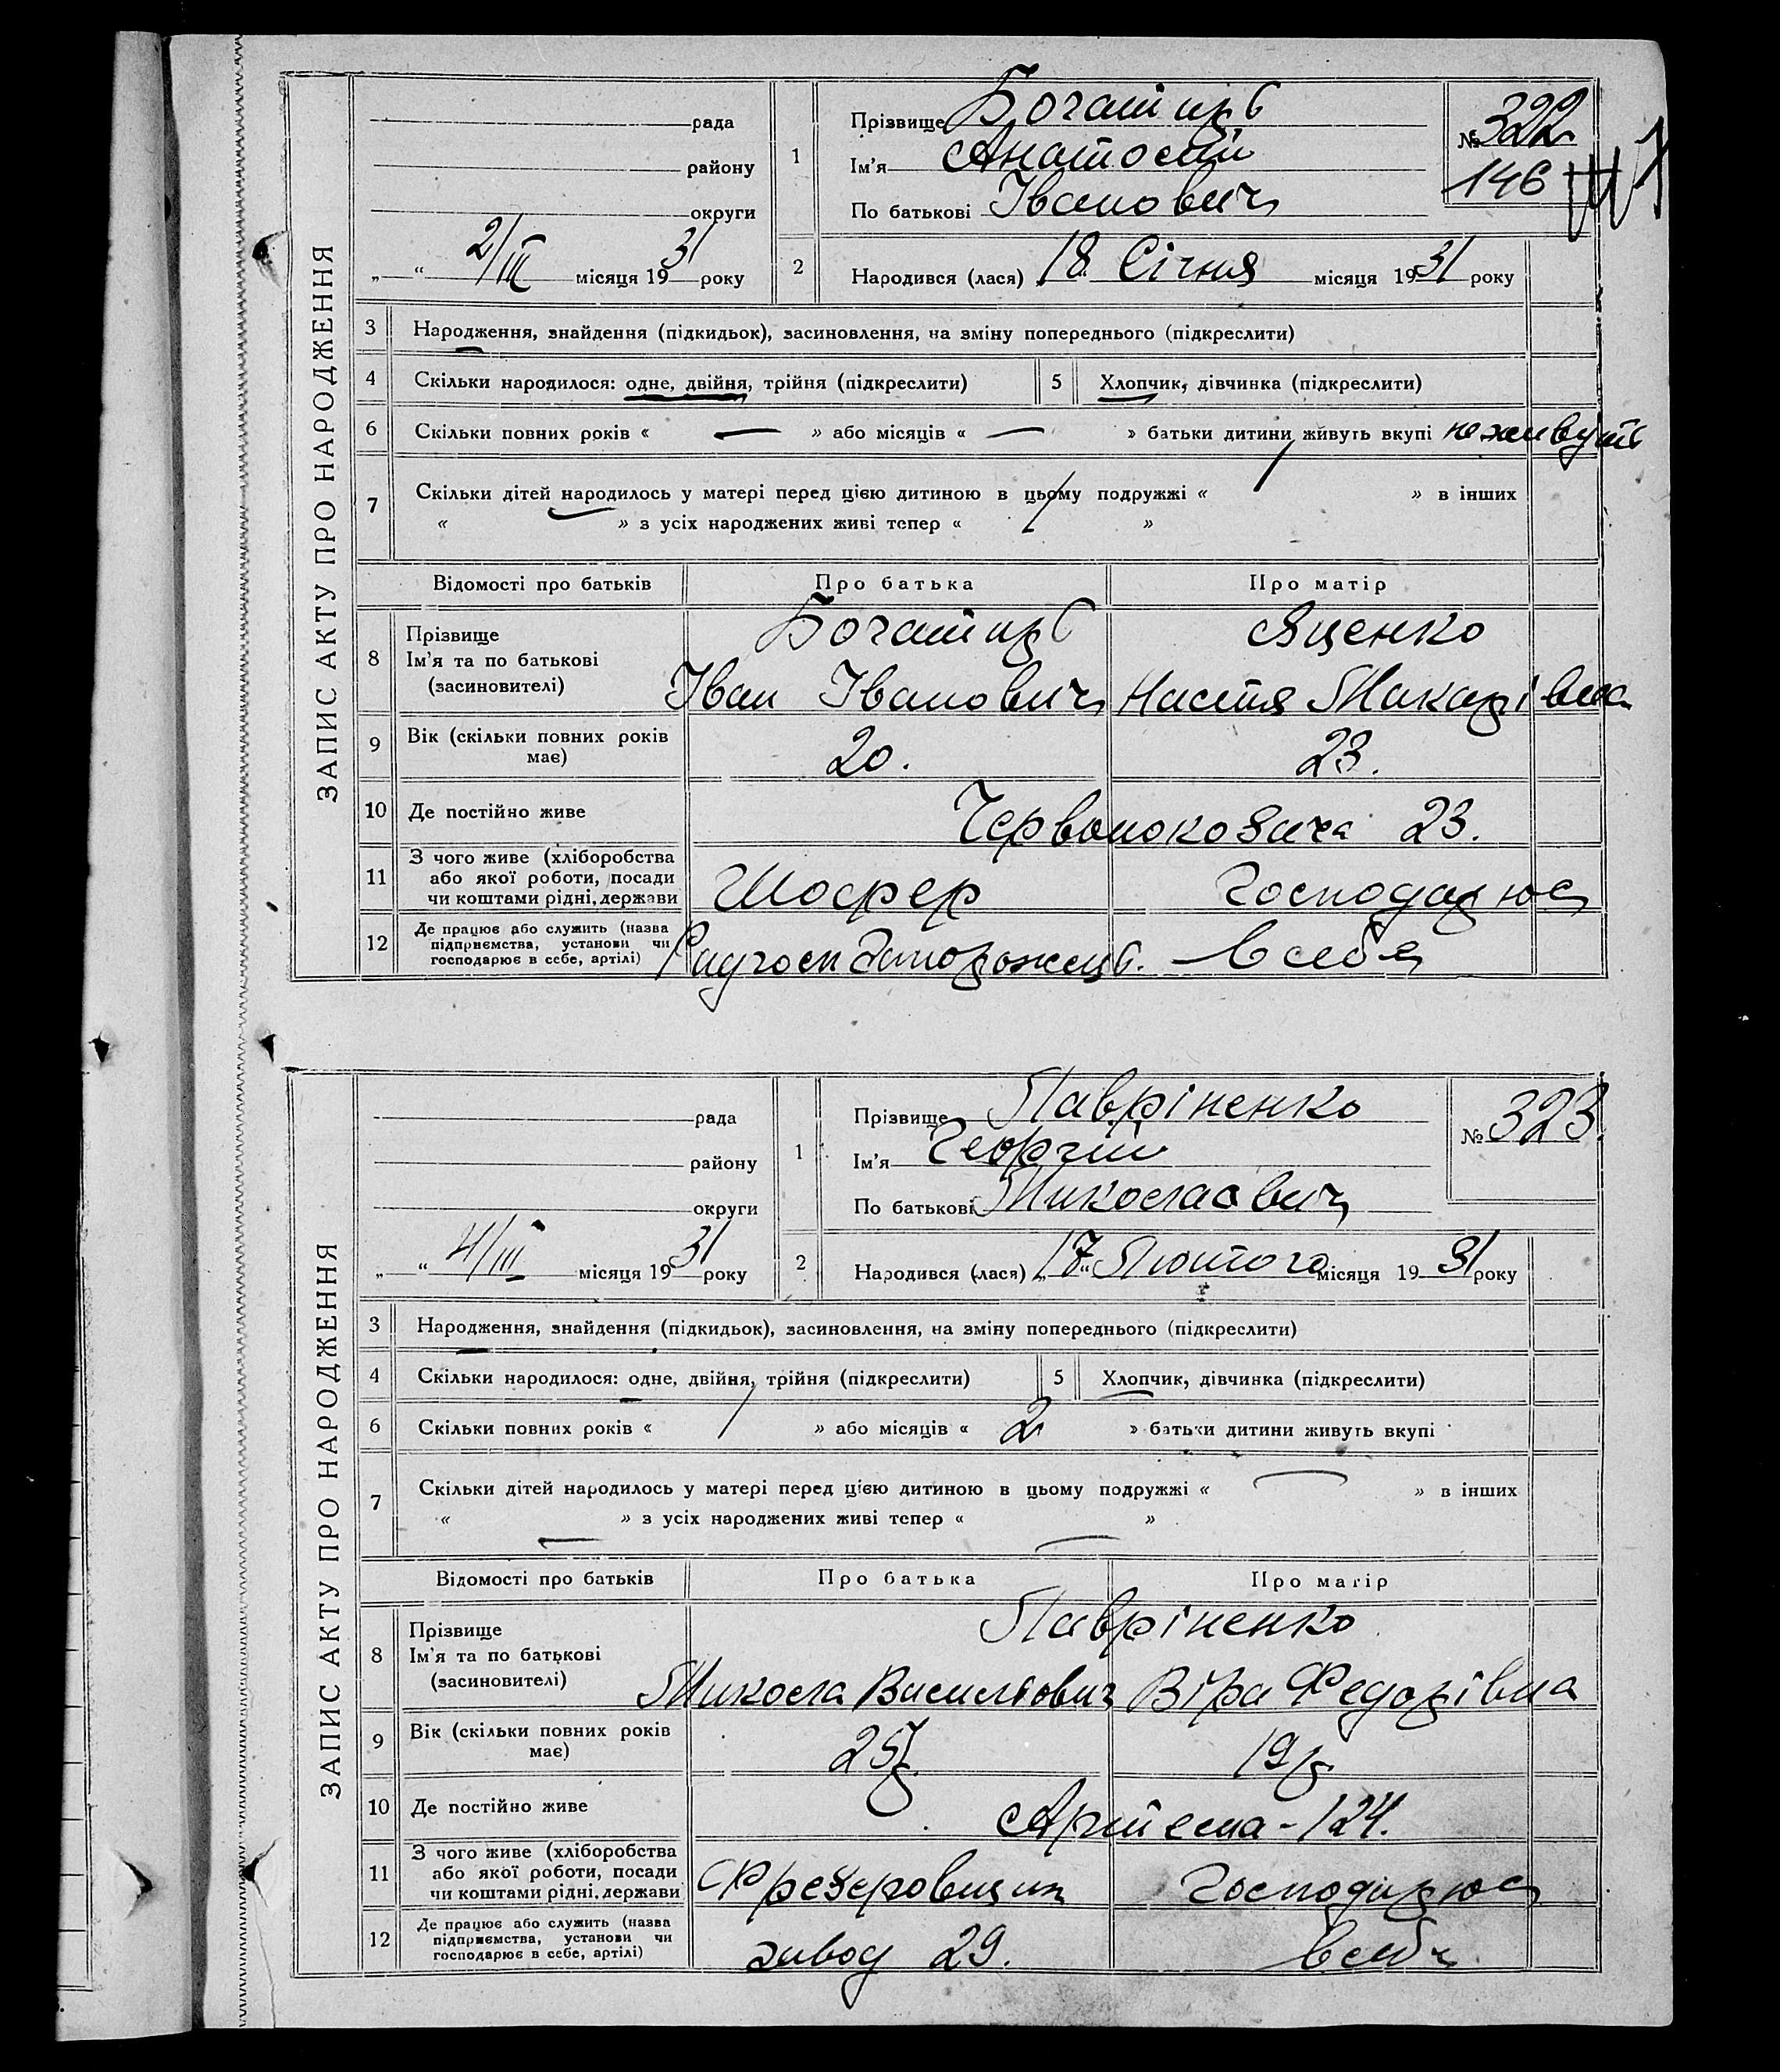 ЗАПИС АКТУ ПРО НАРОДЖЕННЯ
рада
району
округи
„ “ 2/III місяця 1931 року
1
Прізвище Богатирь
Ім’я Анатолій
По батькові Іванович
№ 322
146
2
Народився (лася) 18 Січня місяця 1931 року
3 Народження, знайдення (підкидьок), засиновлення, на зміну попереднього (підкреслити)
4 Скільки народилося: одне, двійня, трійня (підкреслити) 5 Хлопчик, дівчинка (підкреслити)
6 Скільки повних років « — » або місяців « — » батьки дитини живуть вкупі не живуть
7 Скільки дітей народилось у матері перед цією дитиною в цьому подружжі « » в інших
« » з усіх народжених живі тепер « »
Відомості про батьків Про батька Про матір
8 Прізвище Ім’я та по батькові (засиновителі)
Богатирь Яценко
Іван Іванович Настя Макарівна
9 Вік (скільки повних років має) 20. 23.
10 Де постійно живе Червонокозача 23.
11 З чого живе (хліборобства або якої роботи, посади чи коштами рідні, держави Шофер Господарює
12 Де працює або служить (назва підприємства, установи чи господарює в себе, артілі) Радгосп Запорожець. в себе
ЗАПИС АКТУ ПРО НАРОДЖЕННЯ
рада
району
округи
„ “ 4/III місяця 1931 року
1
Прізвище Лавріненко
Ім’я Георгій
По батькові Миколаович
№ 323.
2
Народився (лася) „17“ Лютого місяця 1931 року
3 Народження, знайдення (підкидьок), засиновлення, на зміну попереднього (підкреслити)
4 Скільки народилося: одне, двійня, трійня (підкреслити) 5 Хлопчик, дівчинка (підкреслити)
6 Скільки повних років « » або місяців « 2 » батьки дитини живуть вкупі
7 Скільки дітей народилось у матері перед цією дитиною в цьому подружжі « — » в інших
« — » з усіх народжених живі тепер « — »
Відомості про батьків Про батька Про матір
8 Прізвище Ім’я та по батькові (засиновителі)
Лавріненко
Микола Васильович Віра Федорівна
9 Вік (скільки повних років має) 25 19
10 Де постійно живе Артема - 124.
11 З чого живе (хліборобства або якої роботи, посади чи коштами рідні, держави Фрезеровщик Господарює
12 Де працює або служить (назва підприємства, установи чи господарює в себе, артілі) завод 29. в себе